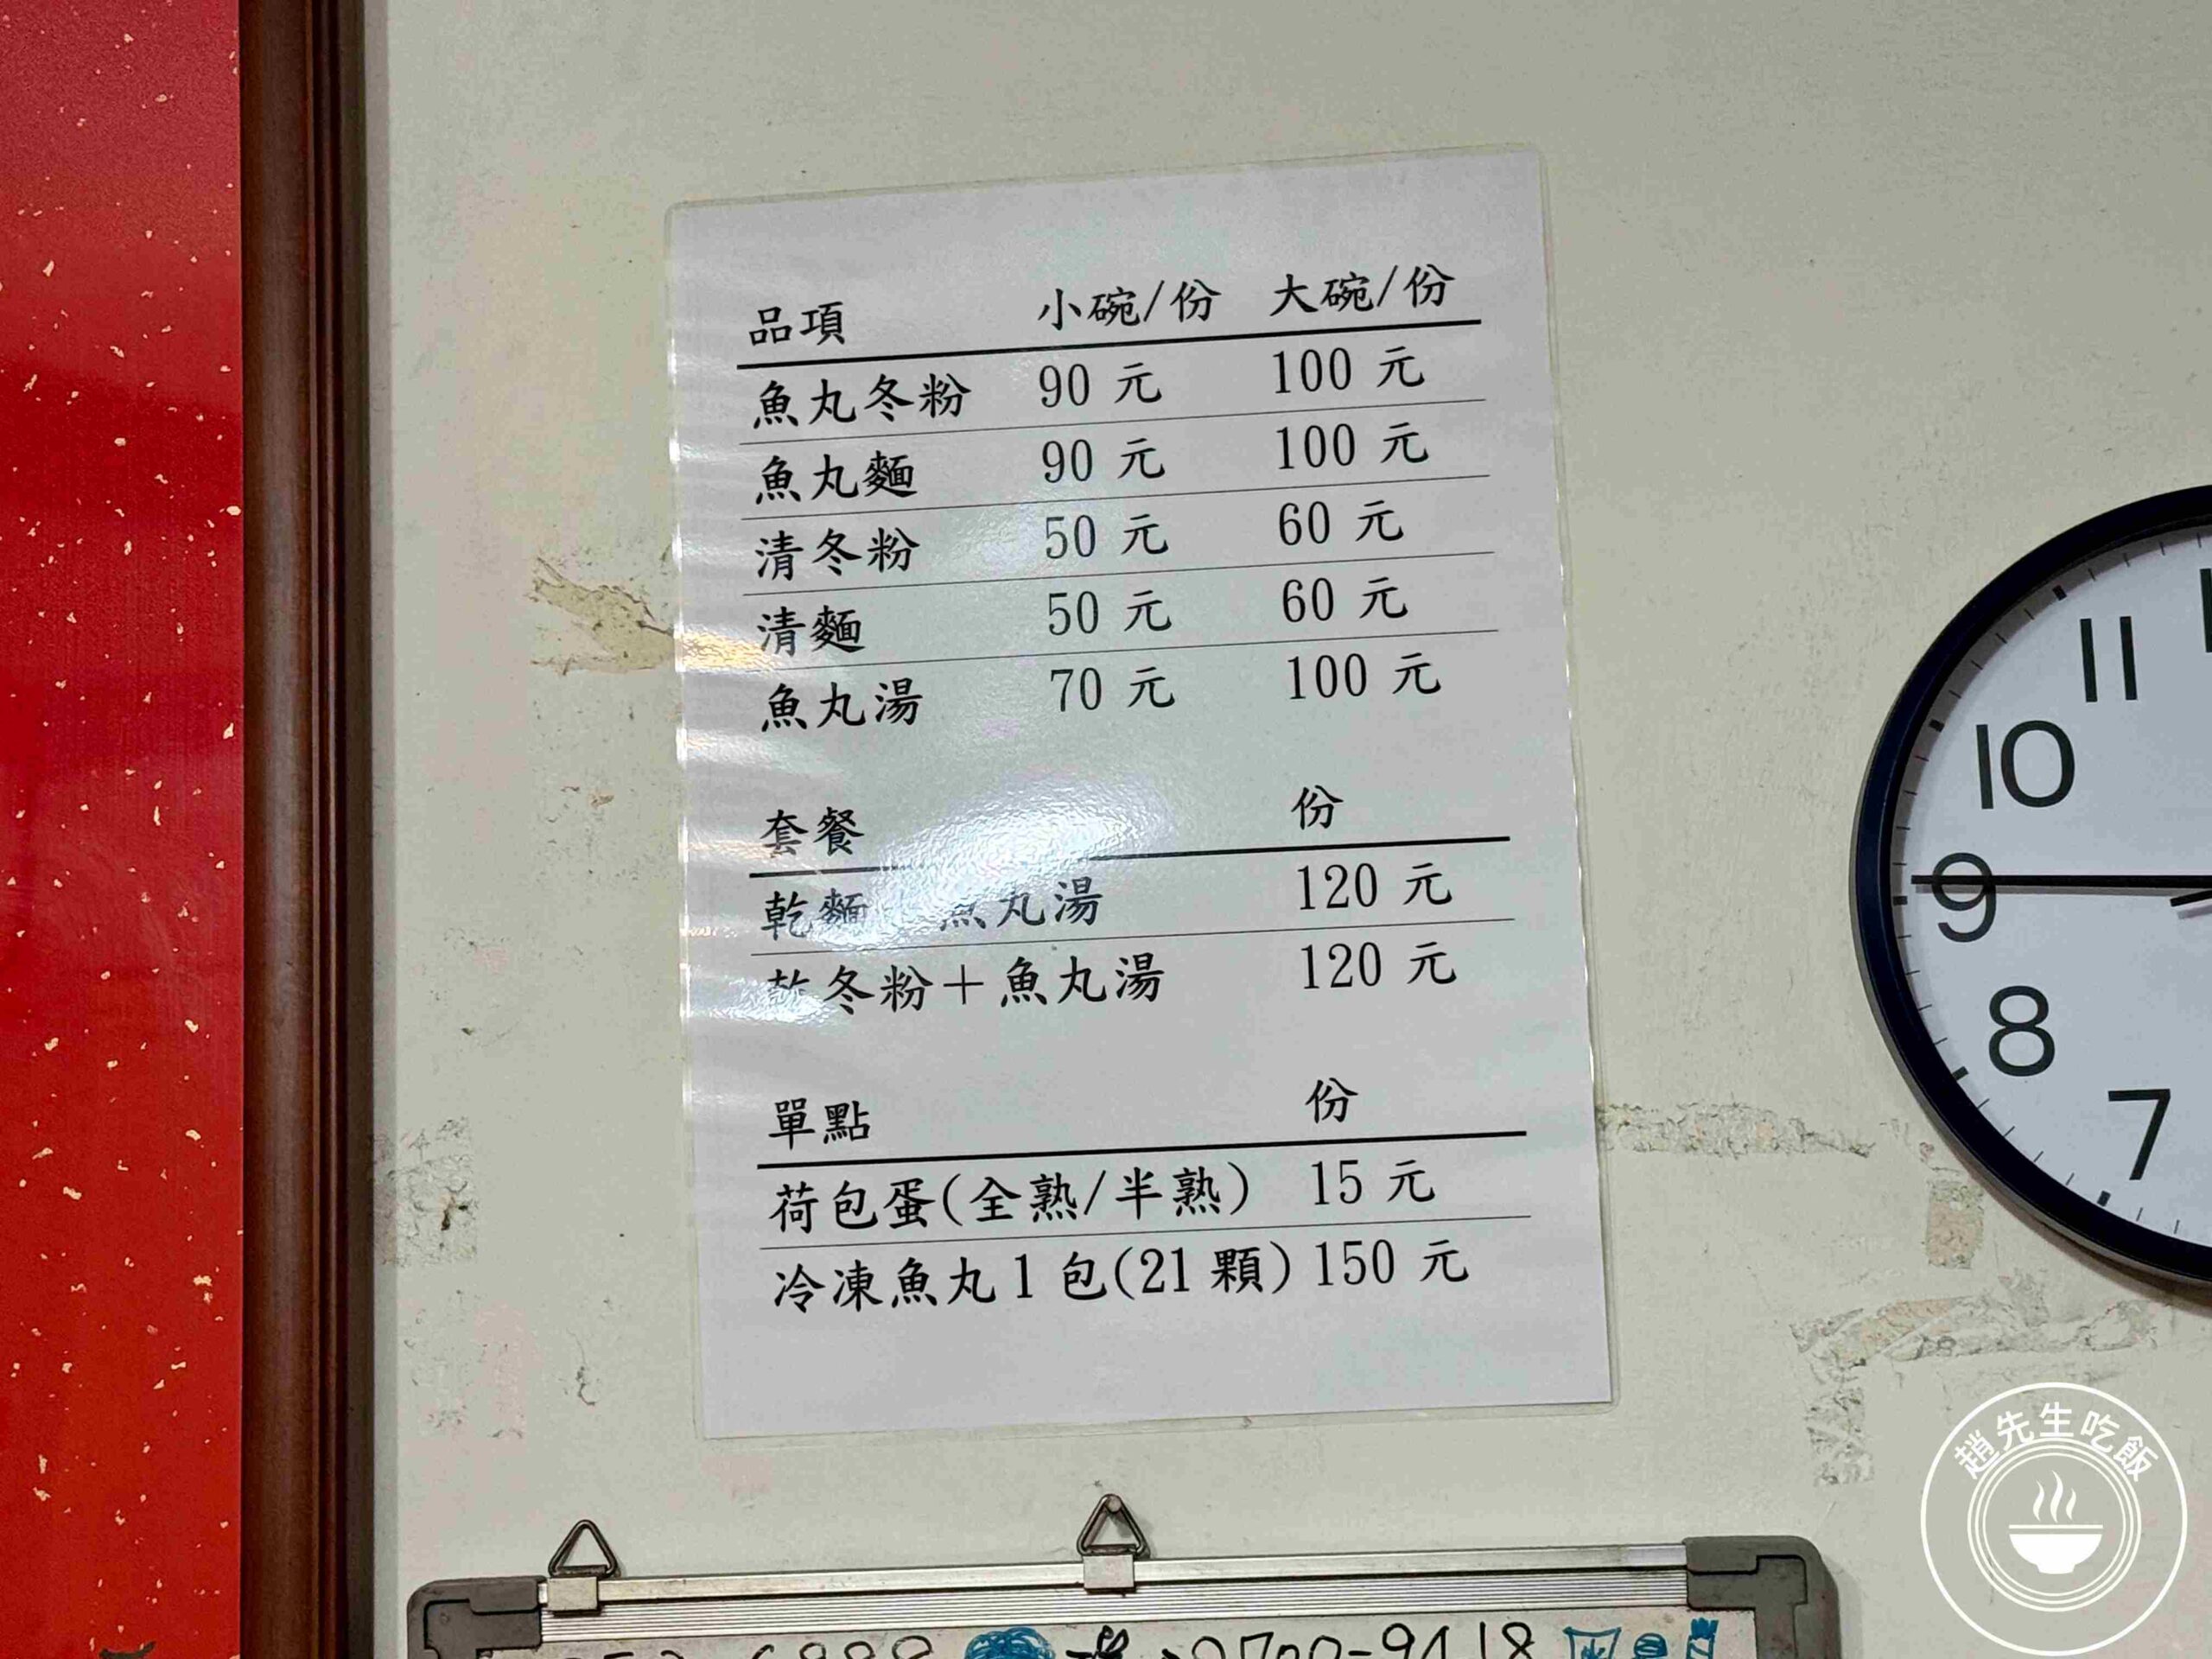 品項 小碗/份 大碗/份
魚丸冬粉 90 元 100 元
魚丸麵 90 元 100 元
清冬粉 50 元 60 元
清麵 50 元 60 元
魚丸湯 70 元 100 元
套餐 份
乾麵 魚丸湯 120 元
乾冬粉+魚丸湯 120 元
單點 份
荷包蛋(全熟/半熟) 15 元
冷凍魚丸1包(21顆) 150 元
11
10
9
8
7
趙先生吃飯